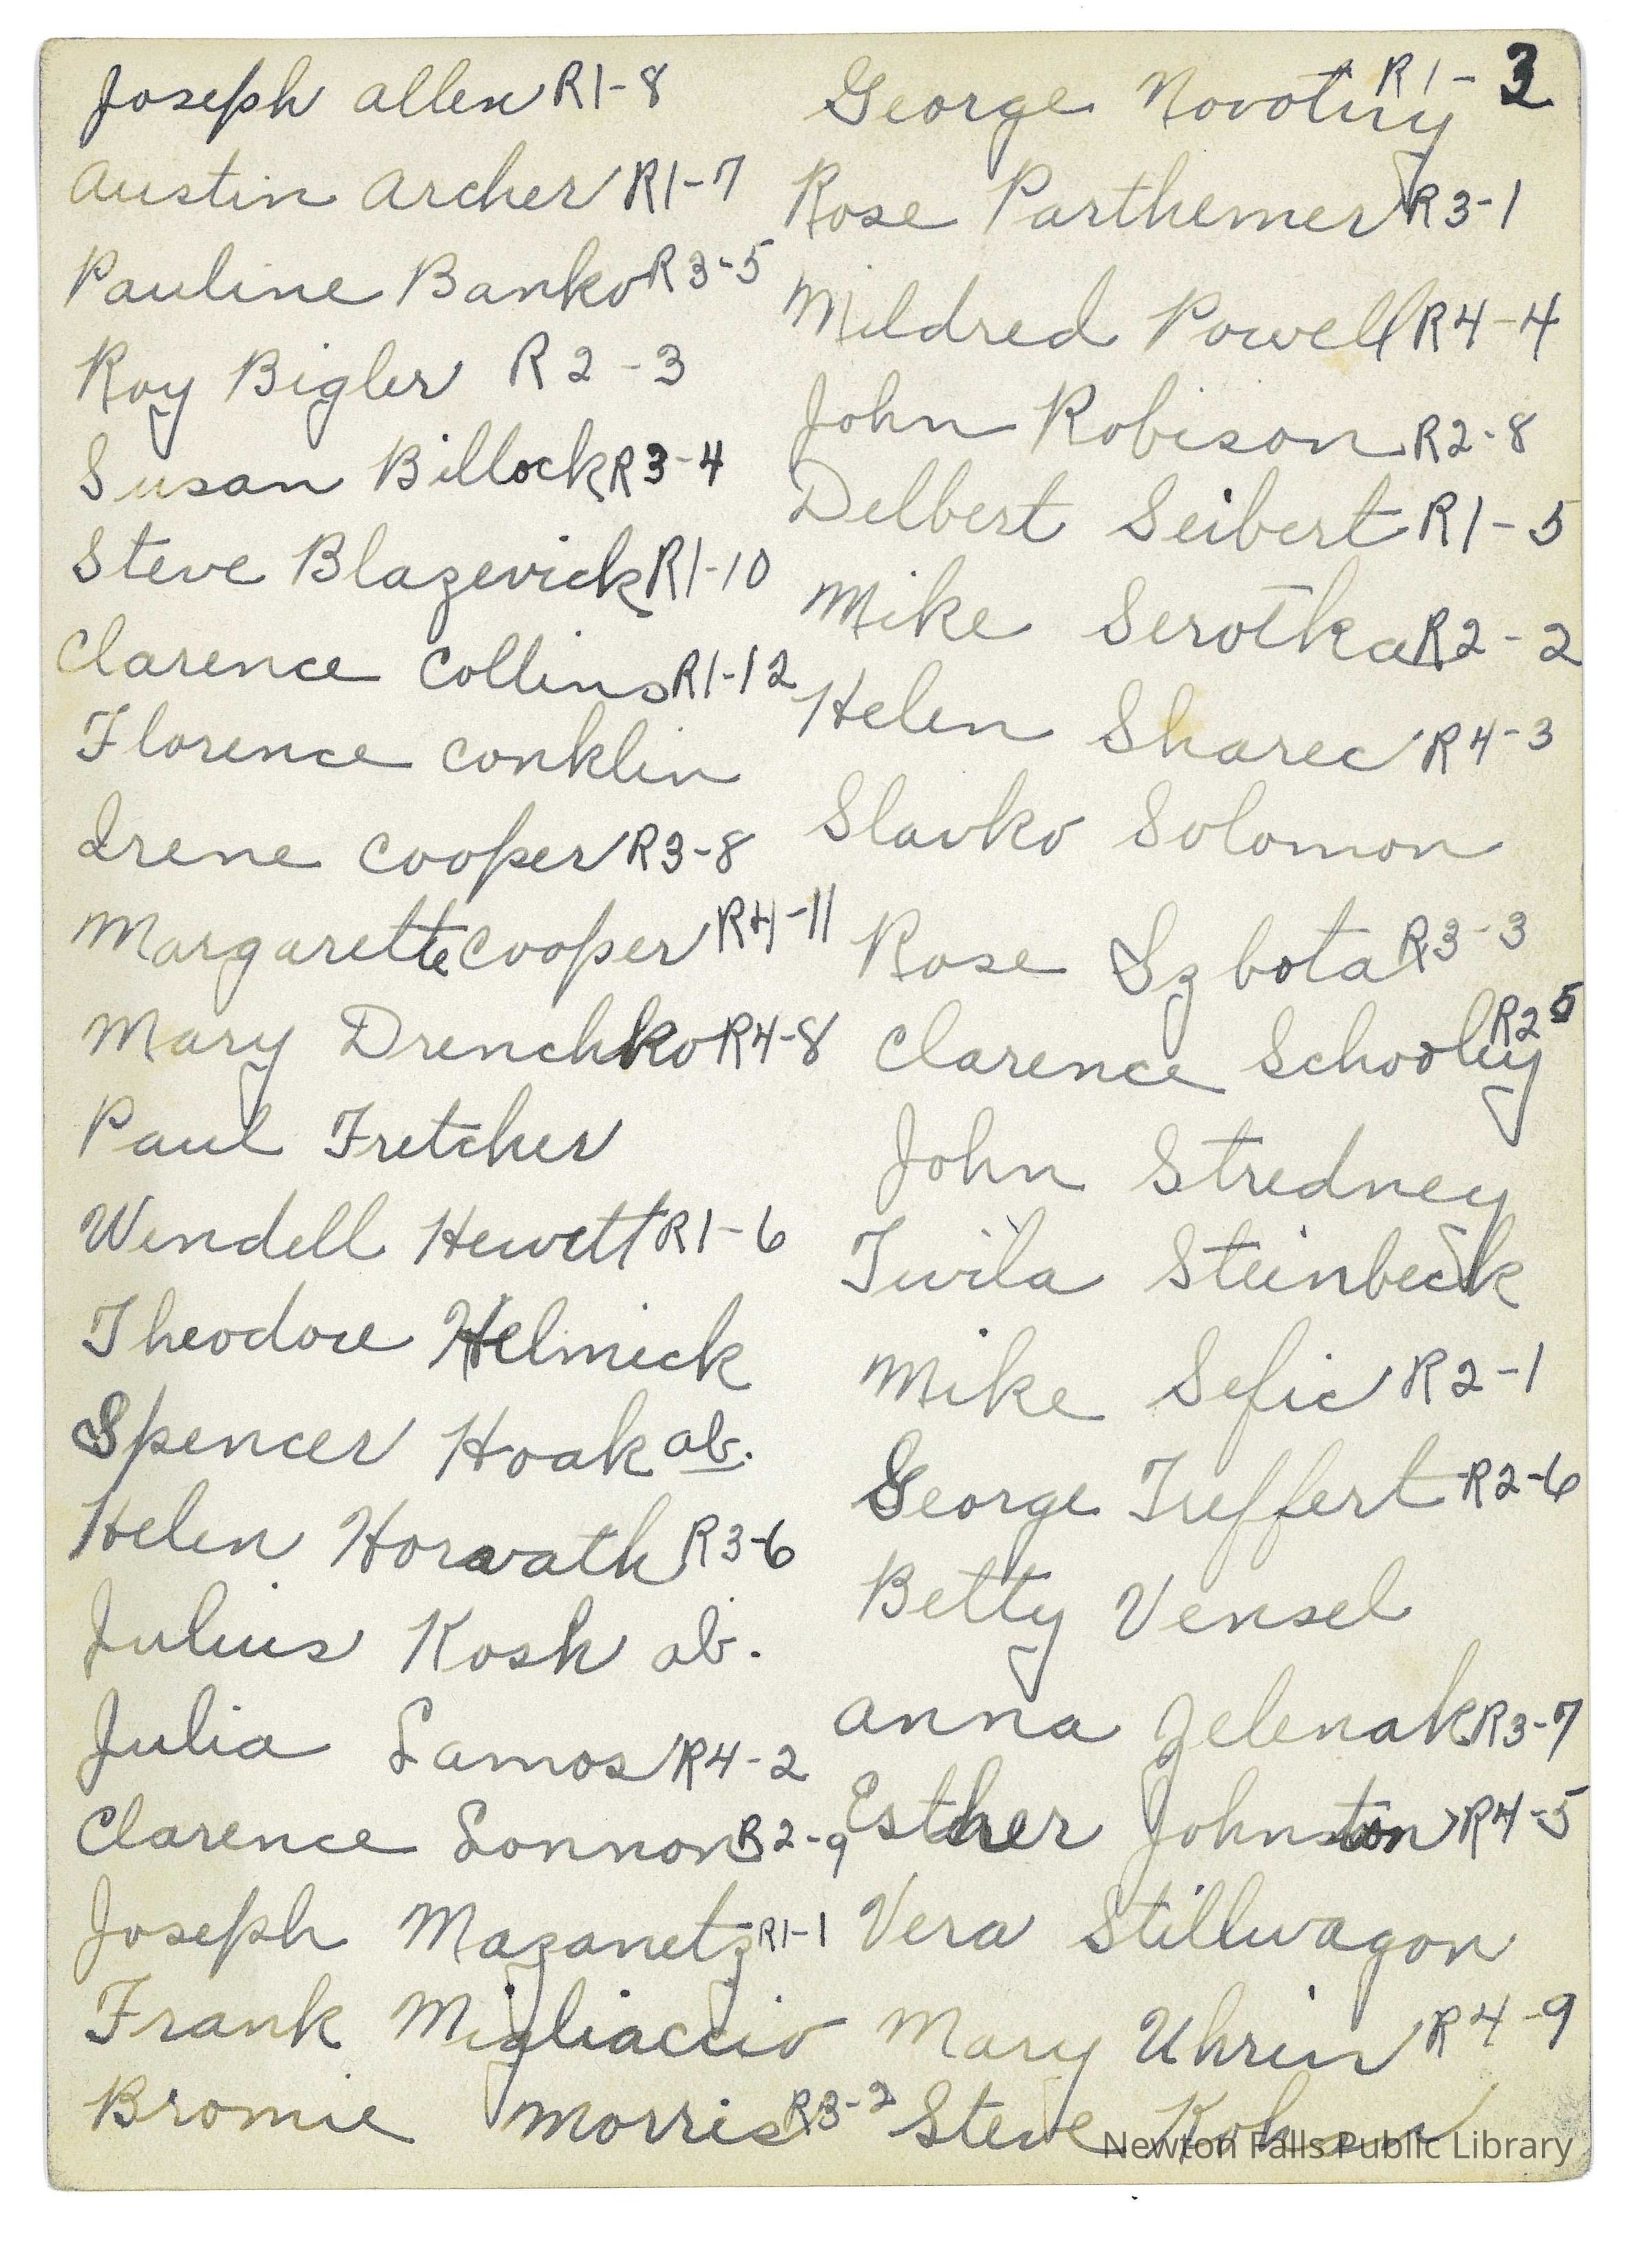 Joseph Allen R1-8
Austin Archer R1-7
Pauline Banko R3-5
Roy Bigler R2-3
Susan Billock R3-4
Steve Blazevick R1-10
Clarence Collins R1-12
Florence Conklin
Irene Cooper R3-8
Margarette Cooper R4-11
Mary Drenchko R4-8
Paul Fretcher
Wendell Hewett R1-6
Theodore Helmick
Spencer Hoak ab.
Helen Horvath R3-6
Julius Kosh ab.
Julia Lamos R4-2
Clarence Lonnon R2-9
Joseph Mazanetz R1-1
Frank Migliaccio
Bromie Morris R3-2
George Novotny R1-3
Rose Parthemer R3-1
Mildred Powell R4-4
John Robison R2-8
Delbert Seibert R1-5
Mike Serotka R2-2
Helen Sharec R4-3
Slavko Solomon
Rose Szbota R3-3
Clarence Schooley R2 5
John Stredney
Twila Steinbeck
Mike Sefic R2-1
George Treffert R2-6
Betty Vensel
Anna Zelenak R3-7
Esther Johnston R4-5
Vera Stillwagon
Mary Uhrin R4-9
Steve
Newton Falls Public Library